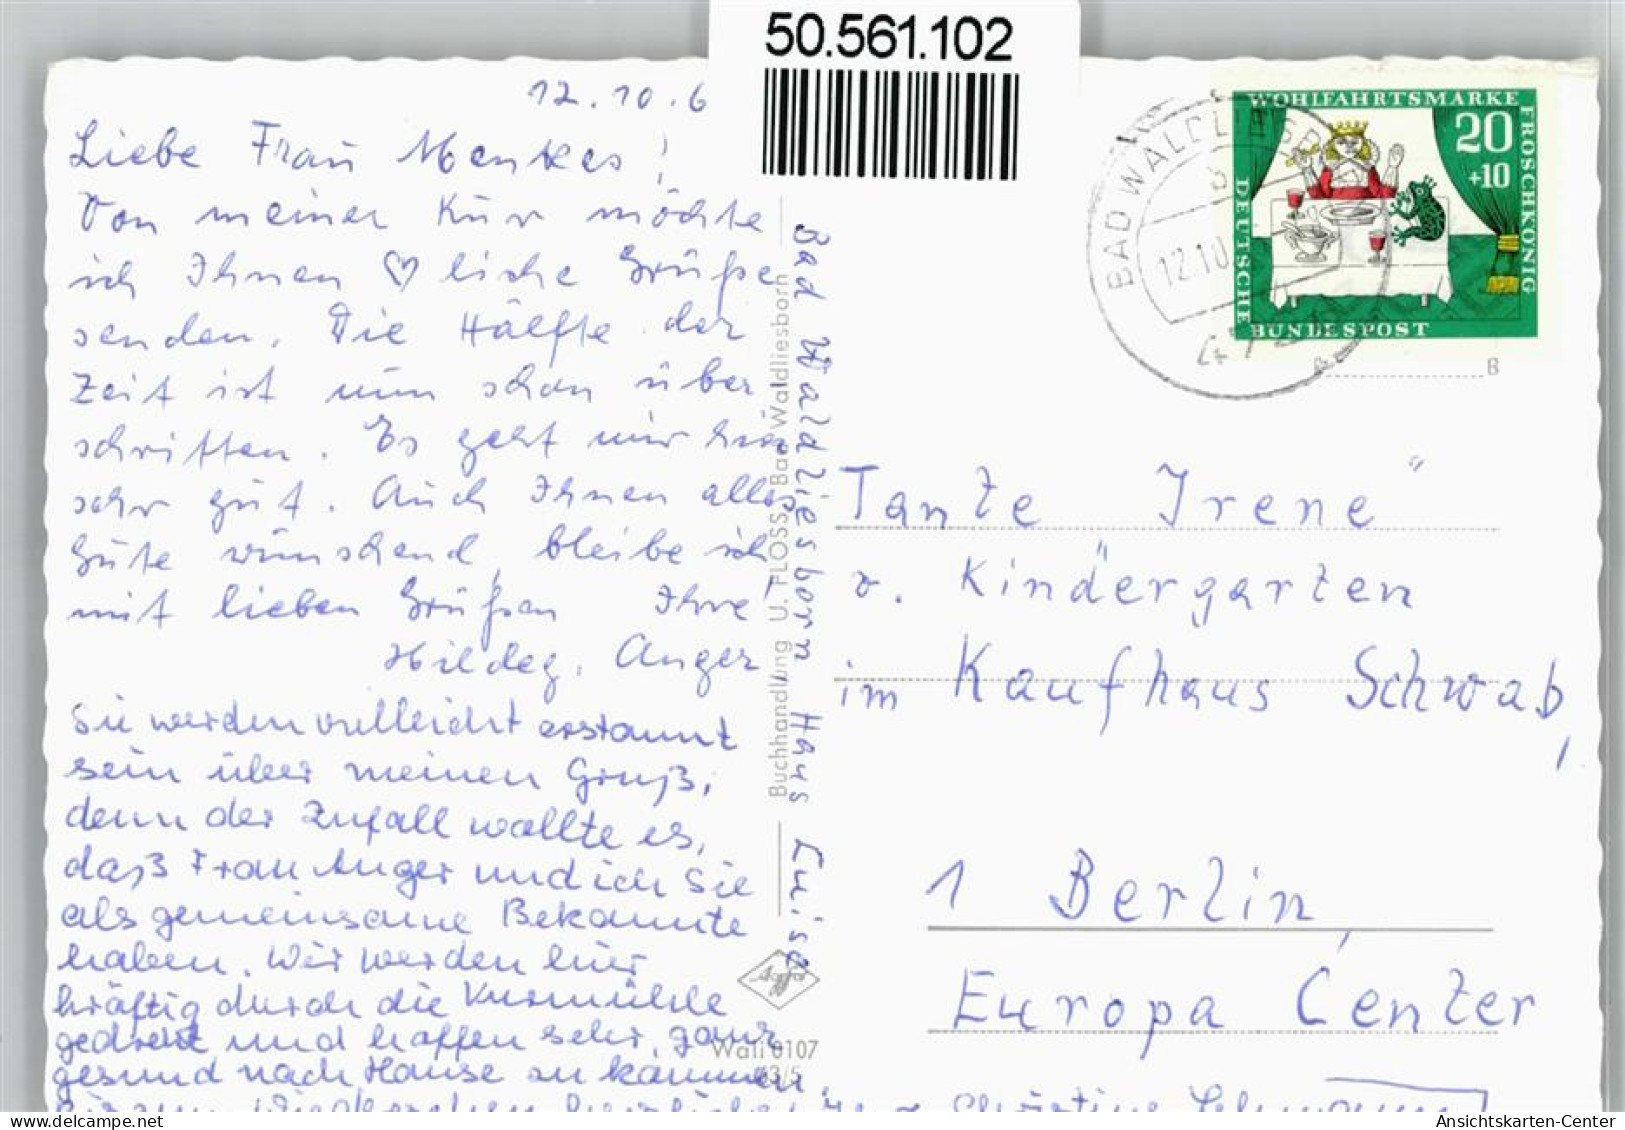 50.561.102
12.10.6
Liebe Frau Menkes!
Von meiner Kur möchte
ich Ihnen ♡ liche Grüße
senden. Die Hälfte der
Zeit ist nun schon über
schritten. Es geht mir hier
sehr gut. Auch Ihnen alles
Gute wünschend, bleibe ich
mit lieben Grüßen Ihre
Hildeg. Anger
Sie werden vielleicht erstaunt
sein über meinen Gruß,
denn der Zufall wollte es,
daß Frau Anger und ich Sie
als gemeinsame Bekannte
haben. Wir werden hier
kräftig durch die Kurmühle
gedreht und hoffen sehr, ganz
gesund nach Hause zu kommen.
Wiedersehen
Christine Lehmann
Bad Waldliesborn, Haus Luise
Buchhandlung U. FLOSS, Bad Waldliesborn
Agfa
Wali 0107
63/5
BAD WALDLIESBORN
12.10
WOHLFAHRTSMARKE
FROSCHKÖNIG
20
+10
DEUTSCHE
BUNDESPOST
B
Tante Irene"
v. Kindergarten
im Kaufhaus Schwab,
1 Berlin,
Europa Center
delcampe.net
Ansichtskarten-Center